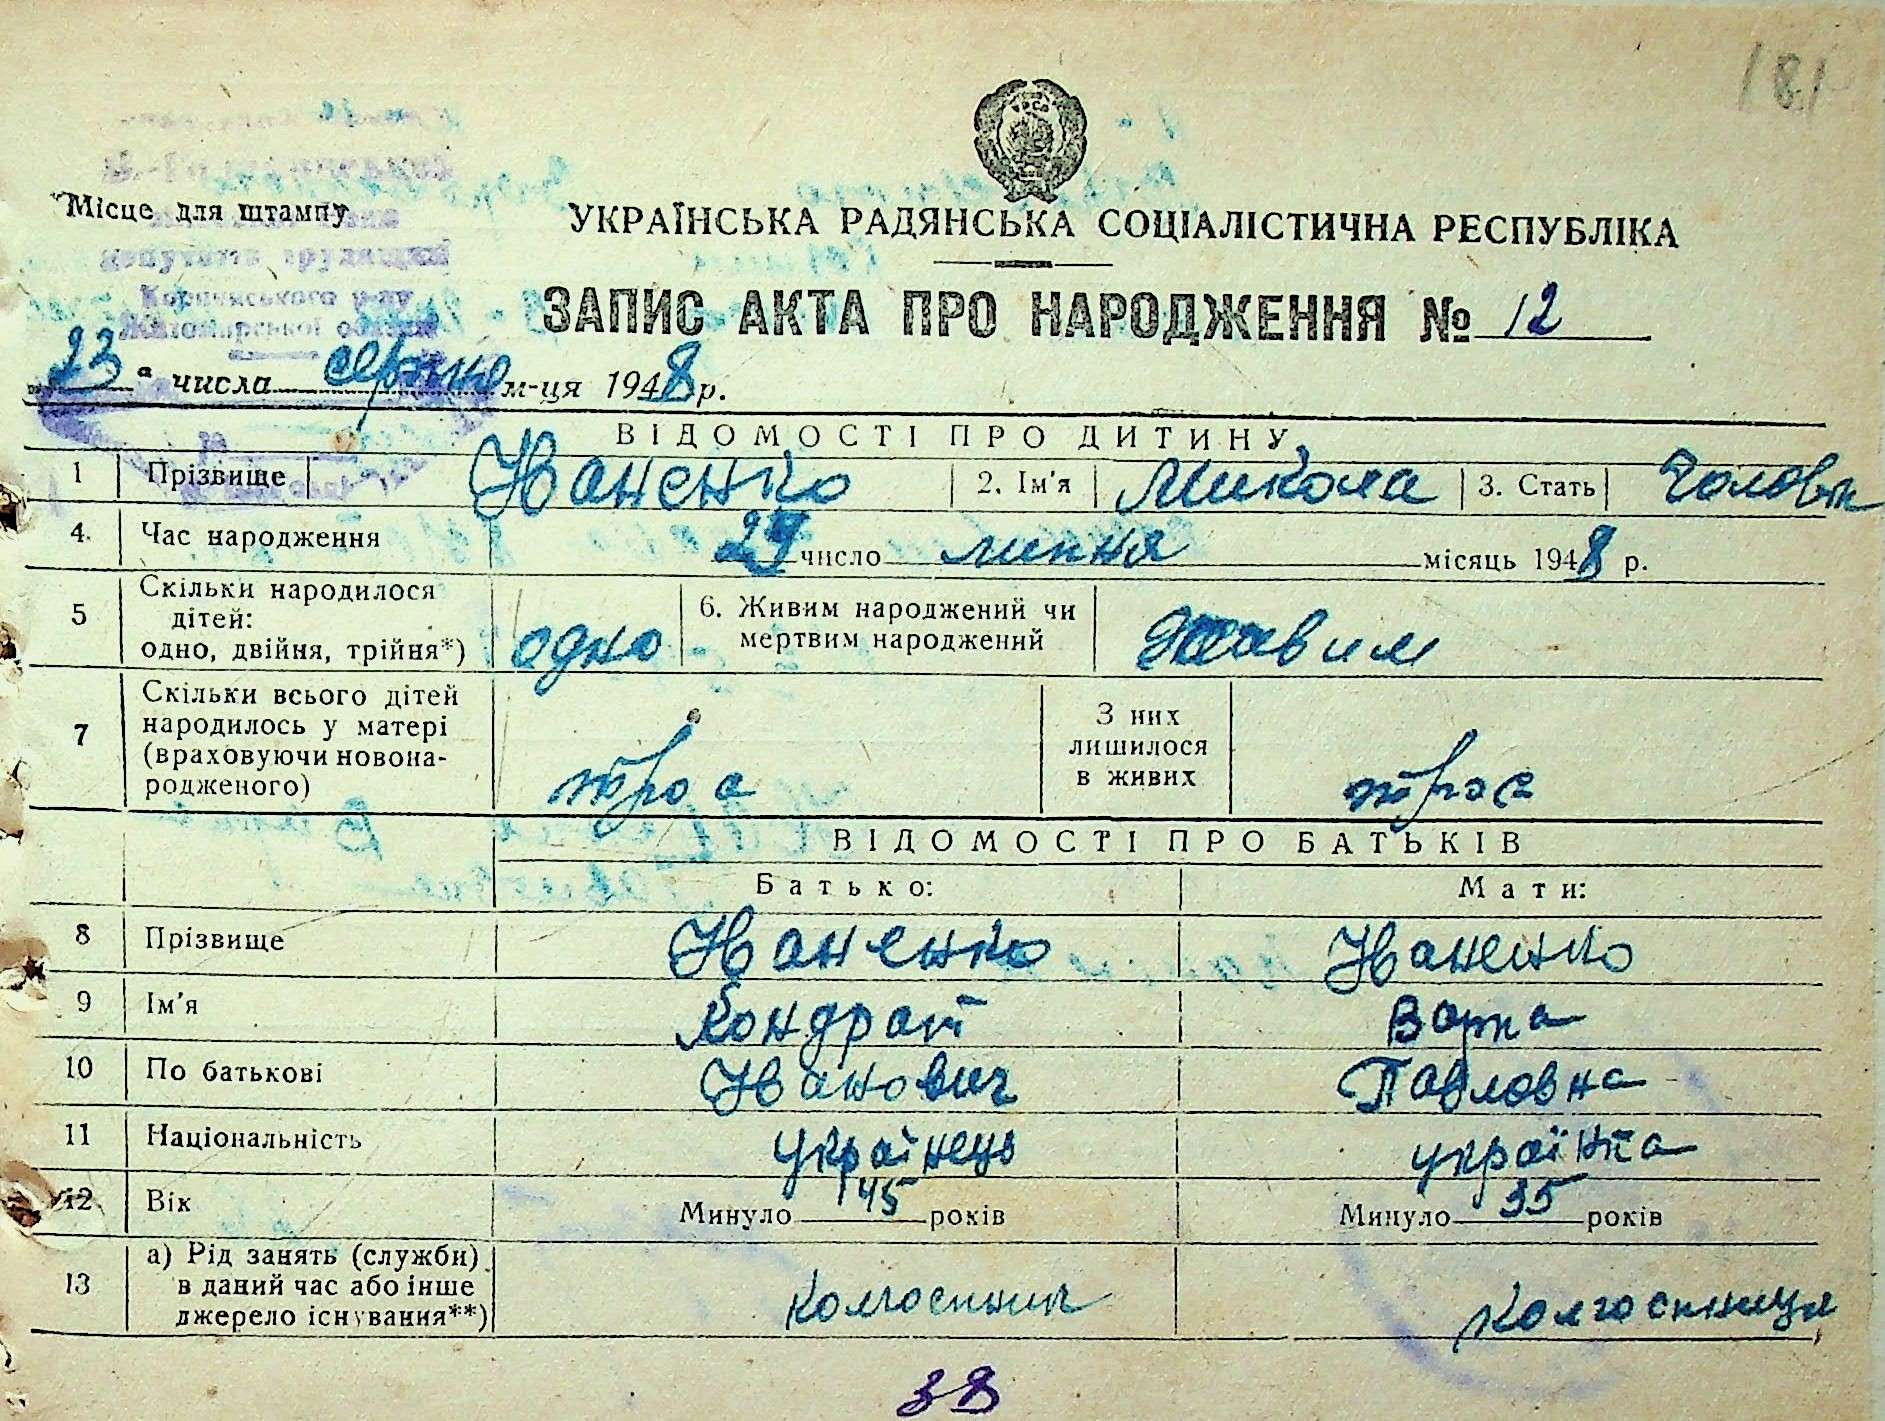 181
Місце для штампу
депутатів трудящих
Корнинського р-ну
Житомирської області
УКРАЇНСЬКА РАДЯНСЬКА СОЦІАЛІСТИЧНА РЕСПУБЛІКА
ЗАПИС АКТА ПРО НАРОДЖЕННЯ № 12
„23“ числа серпня м-ця 1948 р.
ВІДОМОСТІ ПРО ДИТИНУ
1 Прізвище Іваненко 2. Ім'я Микола 3. Стать Чоловік
4. Час народження 29 число липня місяць 1948 р.
5 Скільки народилося дітей: одно, двійня, трійня*) одно 6. Живим народжений чи мертвим народжений живим
7 Скільки всього дітей народилось у матері (враховуючи новона-родженого) троє З них лишилося в живих троє
ВІДОМОСТІ ПРО БАТЬКІВ
Батько: Мати:
8 Прізвище Іваненко Іваненко
9 Ім'я Кондрат Варка
10 По батькові Іванович Павловна
11 Національність українець українка
12 Вік Минуло 45 років Минуло 35 років
13 а) Рід занять (служби) в даний час або інше джерело існування**) колгоспник колгоспниця
38